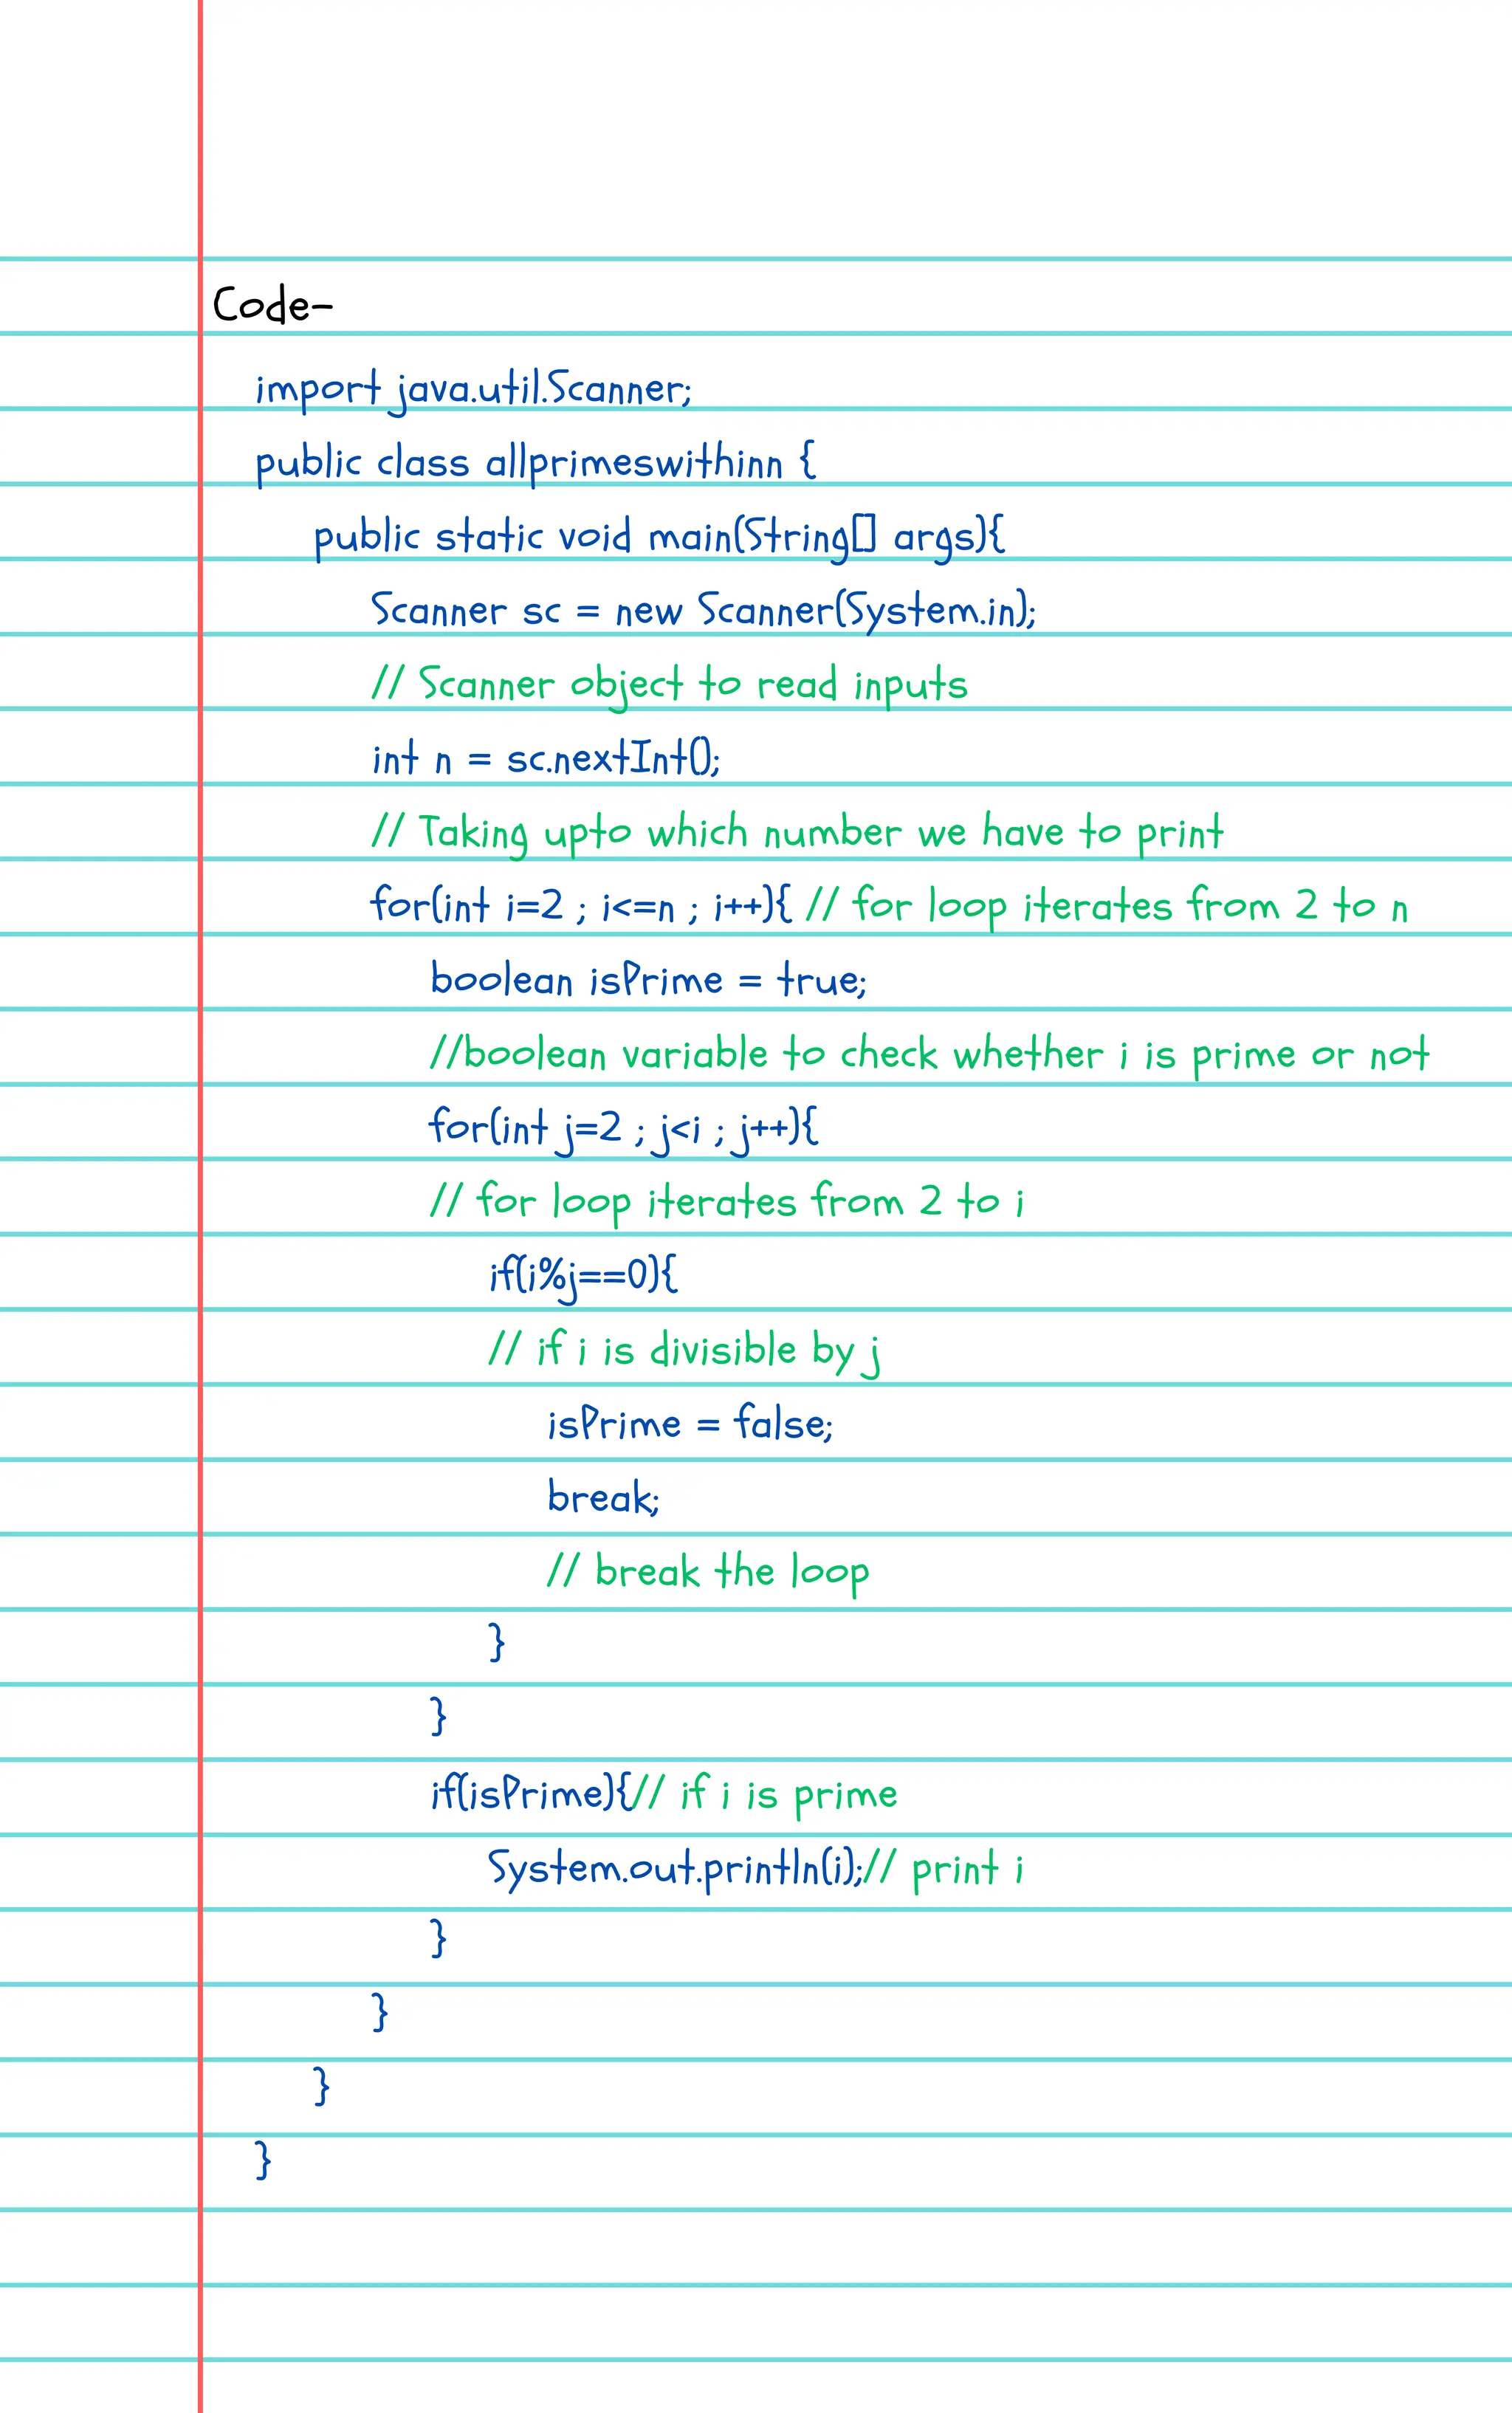 Code-
import java.util.Scanner;
public class allprimeswithinn {
public static void main(String[] args){
Scanner sc = new Scanner(System.in);
// Scanner object to read inputs
int n = sc.nextInt();
// Taking upto which number we have to print
for(int i=2 ; i<=n ; i++){ // for loop iterates from 2 to n
boolean isPrime = true;
//boolean variable to check whether i is prime or not
for(int j=2 ; j<i ; j++){
// for loop iterates from 2 to i
if(i%j==0){
// if i is divisible by j
isPrime = false;
break;
// break the loop
}
}
if(isPrime){// if i is prime
System.out.println(i);// print i
}
}
}
}